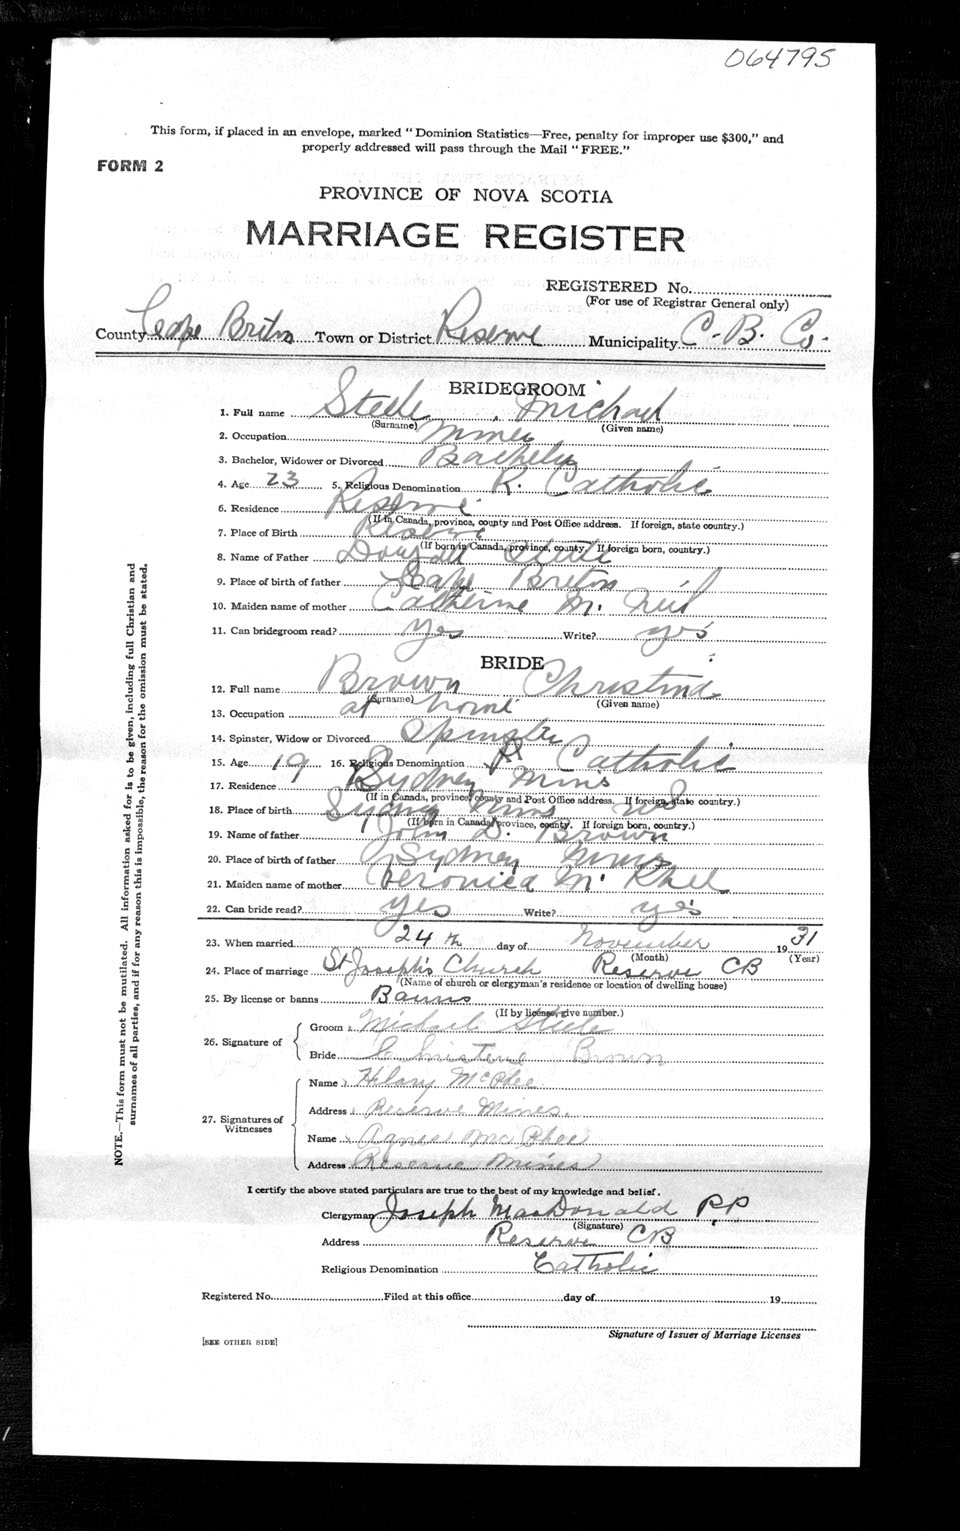 064795
This form, if placed in an envelope, marked "Dominion Statistics—Free, penalty for improper use $300," and
properly addressed will pass through the Mail "FREE."
FORM 2
PROVINCE OF NOVA SCOTIA
MARRIAGE REGISTER
REGISTERED No.
(For use of Registrar General only)
County Cape Breton Town or District Reserve Municipality C. B. Co.
BRIDEGROOM
1. Full name Steele, Michael
(Surname) (Given name)
2. Occupation Miner
3. Bachelor, Widower or Divorced Bachelor
4. Age 23 5. Religious Denomination R. Catholic
6. Residence Reserve
(If in Canada, province, county and Post Office address. If foreign, state country.)
7. Place of Birth Reserve
(If born in Canada, province, county. If foreign born, country.)
8. Name of Father Dougall Steele
9. Place of birth of father Cape Breton
10. Maiden name of mother Catherine Mc Neil
11. Can bridegroom read? Yes Write? yes
BRIDE
12. Full name Brown Christina
(Surname) (Given name)
13. Occupation at home
14. Spinster, Widow or Divorced Spinster
15. Age 19 16. Religious Denomination R Catholic
17. Residence Sydney Mines
(If in Canada, province, county and Post Office address. If foreign, state country.)
18. Place of birth Sydney Mines N S
(If born in Canada, province, county. If foreign born, country.)
19. Name of father John D. Brown
20. Place of birth of father Sydney Mines
21. Maiden name of mother Veronica Mc Phee
22. Can bride read? yes Write? yes
23. When married 24 th day of November 1931
(Month) (Year)
24. Place of marriage St Joseph's Church Reserve CB
(Name of church or clergyman's residence or location of dwelling house)
25. By license or banns Banns
(If by license, give number.)
26. Signature of
Groom Michael Steele
Bride Christene Brown
27. Signatures of Witnesses
Name Hilary McPhee
Address Reserve Mines.
Name Agnes Mc Phee
Address Reserve Mines
I certify the above stated particulars are true to the best of my knowledge and belief.
Clergyman Joseph MacDonald P.P
(Signature)
Address Reserve CB
Religious Denomination Catholic
Registered No. Filed at this office day of 19
Signature of Issuer of Marriage Licenses
[SEE OTHER SIDE]
NOTE.—This form must not be mutilated. All information asked for is to be given, including full Christian and
surnames of all parties, and if for any reason this is impossible, the reason for the omission must be stated.